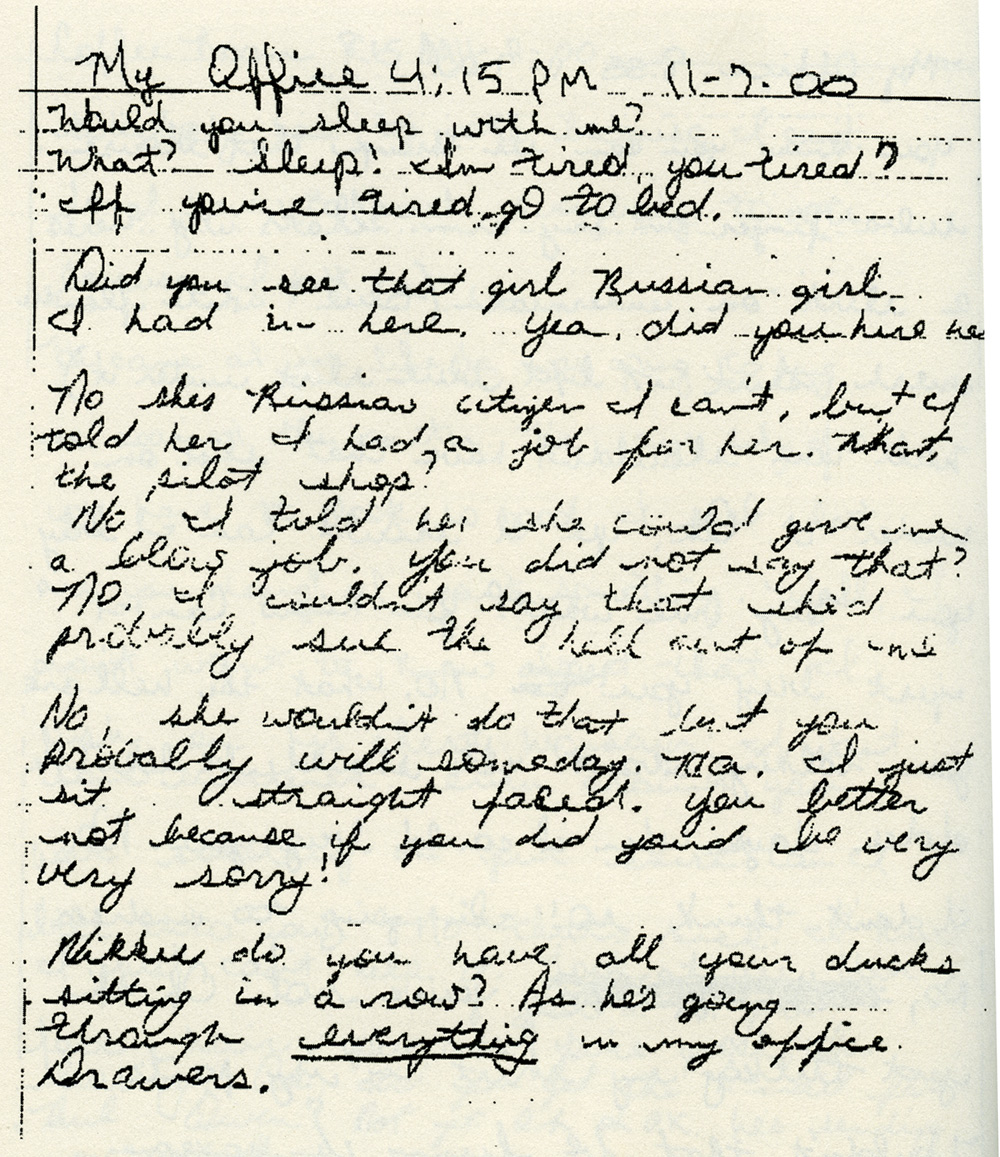 My Office 4:15 PM 11-7-00
Would you sleep with me?
What? Sleep! I'm tired, you tired?
If you're tired go to bed.
Did you see that girl Russian girl
I had in here. Yea, did you hire her
No shes Russian citizen I can't, but I
told her I had a job for her. What,
the pilot shop?
No I told her she could give me
a blow job. You did not say that?
No. I couldn't say that she'd
probally sue the hell out of me
No, she wouldn't do that but you
probally will someday. Na. I just
sit straight faced. You better
not because if you did you'd be very
very sorry!
Nikkie do you have all your ducks
sitting in a row? As he's going
through everything in my office
Drawers.